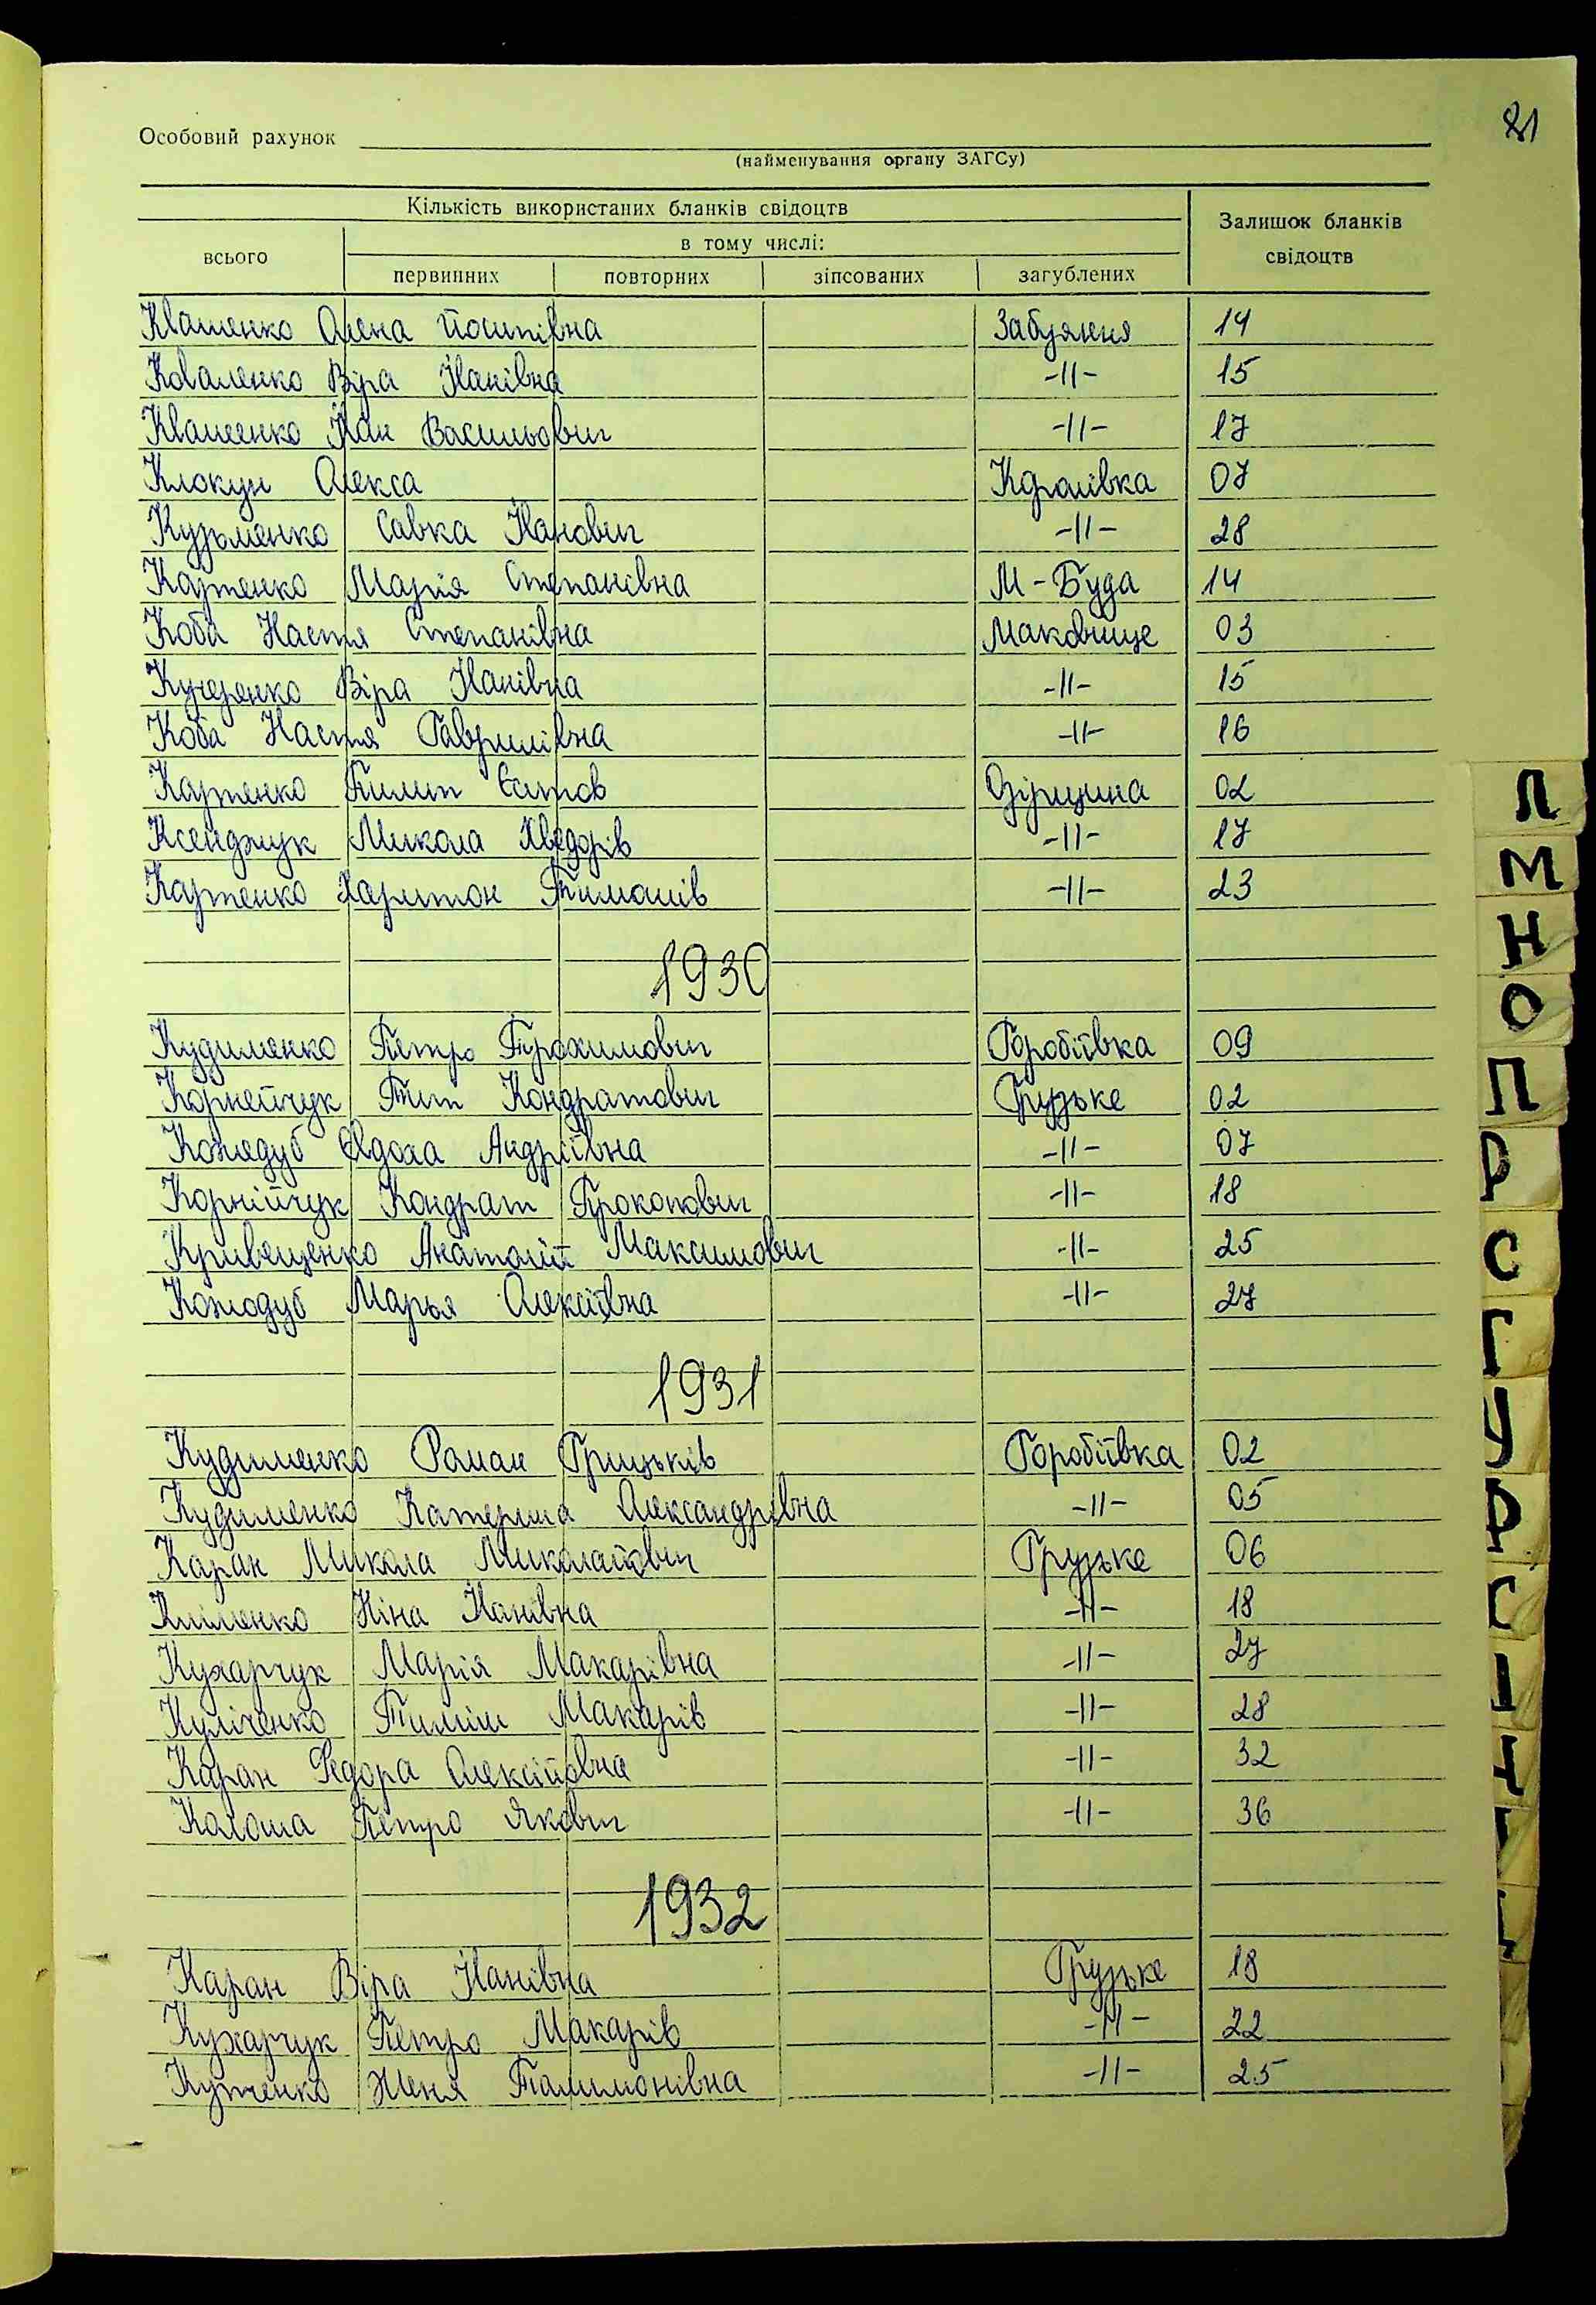 21
Особовий рахунок
(найменування органу ЗАГСу)
Кількість використаних бланків свідоцтв
Залишок бланків свідоцтв
всього
в тому числі:
первинних повторних зіпсованих загублених
Квашенко Олена Йосипівна Забуяння 14
Коваленко Віра Іванівна -11- 15
Квашенко Іван Васильович -11- 17
Клокун Олекса Королівка 07
Кузьменко Савка Іванович -11- 28
Карпенко Марія Степанівна М-Буда 14
Коба Настя Степанівна Маковище 03
Кучеренко Віра Іванівна -11- 15
Коба Настя Гаврилівна -11- 16
Карпенко Пилип 02
Ксенджук Микола Хведорів -11- 17
Карпенко Харитон -11- 23
1930
Кудименко Петро Трохимович Горобіївка 09
Корнейчук Тит Кондратович Грузьке 02
Кожедуб Явдоха Андріївна -11- 07
Корнійчук Кондрат Прокопович -11- 18
Кривещенко Анатолій Максимович -11- 25
Кожодуб Марья Олексіївна -11- 27
1931
Кудименко Роман Грицьків Горобіївка 02
Кудименко Катерина Олександрівна -11- 05
Каран Микола Миколайович Грузьке 06
Кліменко Ніна Іванівна -11- 18
Кухарчук Марія Макарівна -11- 27
Куліченко Тиміш Макарів -11- 28
Каран Федора Олексійовна -11- 32
Калоша Петро Якович -11- 36
1932
Каран Віра Іванівна Грузьке 18
Кухарчук Петро Макарів -11- 22
Купченко Женя -11- 25
Л
М
Н
О
П
Р
С
Т
У